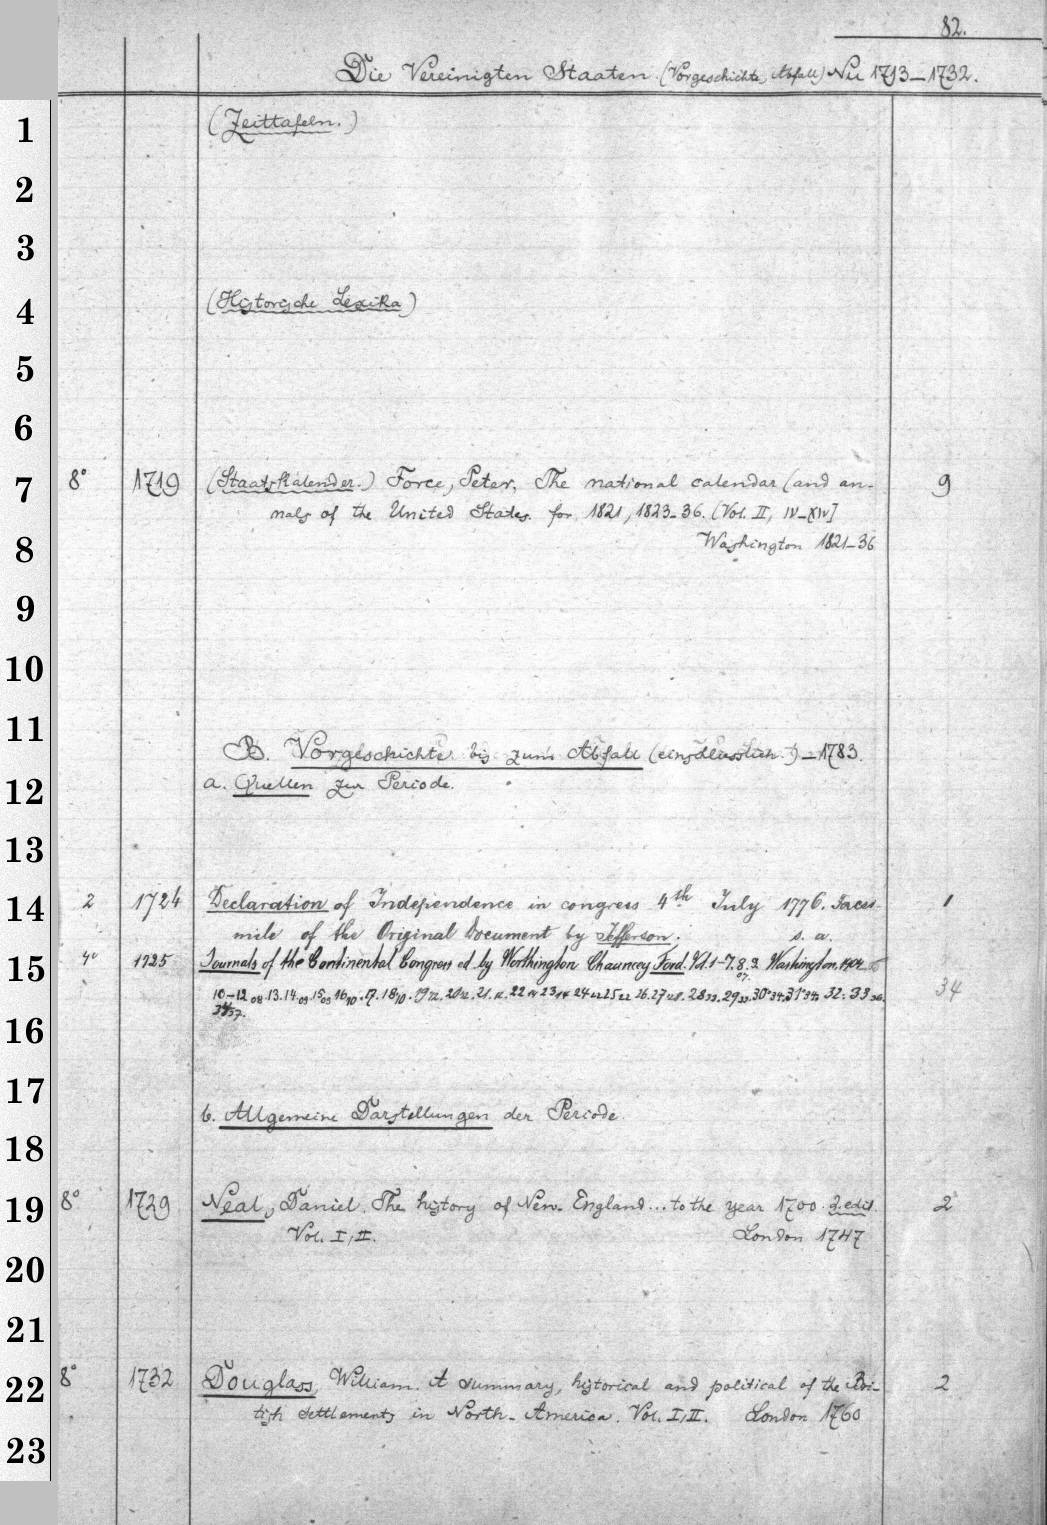 82.
Die Vereinigten Staaten. (Vorgeschichte, Abfall) Nu 1713–1732.
1 (Zeittafeln.)
2
3
4 (Historische Lexika)
5
6
7 8° 1719 (Staatskalender.) Force, Peter, The national calendar (and an- 9
nals of the United States. for 1821, 1823-36. [Vol. II, IV–XIV]
8 Washington 1821–36
9
10
11 B. Vorgeschichte bis zum Abfall (einschliesslich.) – 1783.
12 a. Quellen zur Periode.
13
14 2 1724 Declaration of Independence in congress 4th July 1776. Facsi- 1
mile of the Original Document by Jefferson. s. a.
15 4° 1725 Journals of the Continental Congress ed by Worthington Chauncey Ford. Vol. 1–7. 8. 9. Washington. 1904
10–12 08. 13. 14. 09. 15 09 16 10. 17. 18 10. 19 12. 20 12. 21. 12. 22 14 23 14 24 22 25 22 26. 27 28. 28 33. 29 33. 30 34. 31 34. 32. 33 36. 34
34 37.
16
17 b. Allgemeine Darstellungen der Periode.
18
19 8° 1729 Neal, Daniel, The history of New-England ... to the year 1700. 2. edit. 2
Vol. I, II. London 1747
20
21
22 8° 1732 Douglass, William. A summary, historical and political of the Bri- 2
tish settlements in North-America. Vol. I, II. London 1760
23